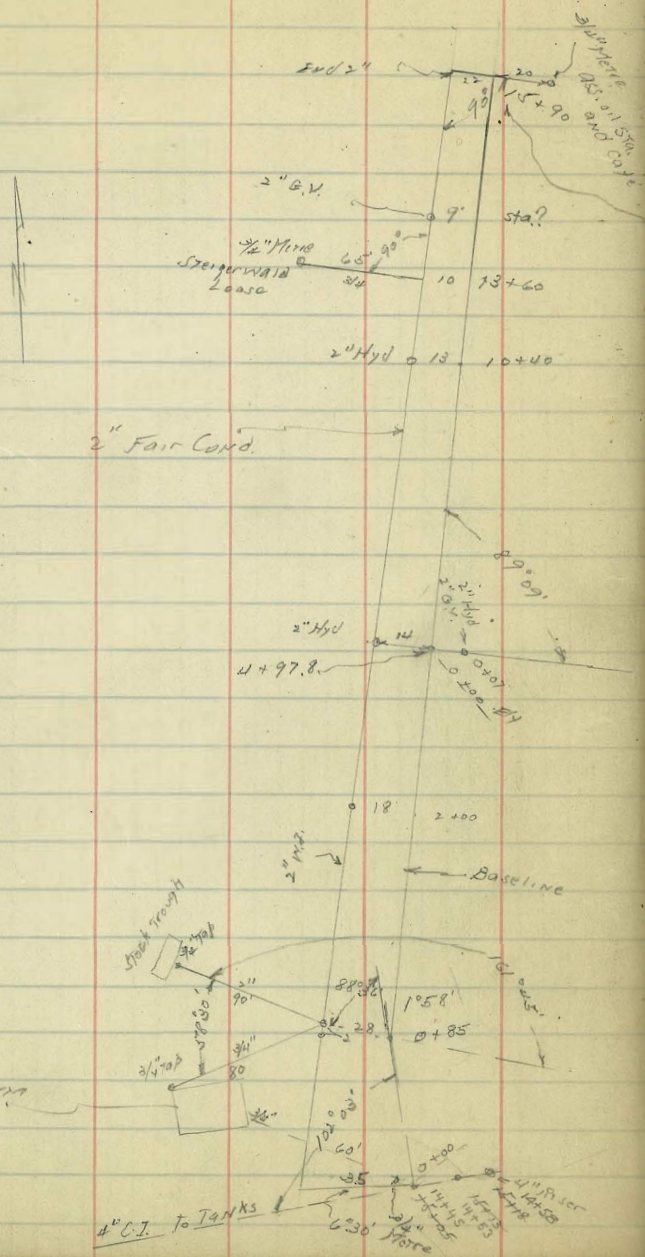 End 2"
22
20
90°
15+90
3/4" Metre
Ass. Oil Sta.
and Café
2" G.V.
9'
sta?
3/4" Metre
Steigerwald
Lease
65'
90°
3/4
10
13+60
2" Hyd
13
10+40
2" Fair Cond.
89°09'
2" Hyd
2" G.V.
2" Hyd
14
4+97.8
0+07
0+00
18'
2+00
2" W.I.
Baseline
Stock Trough
3/4" Tap
2"
90'
161°45'
58°30'
88°
1°58'
28
0+85
3/4"
80
3/4" Tap
3/4"
102°
60'
0+00
35
4" Riser
14+58
15+18
15+13
14+53
14+45
15+05
3/4"
Metre
6°30'
4" C.I. to Tanks